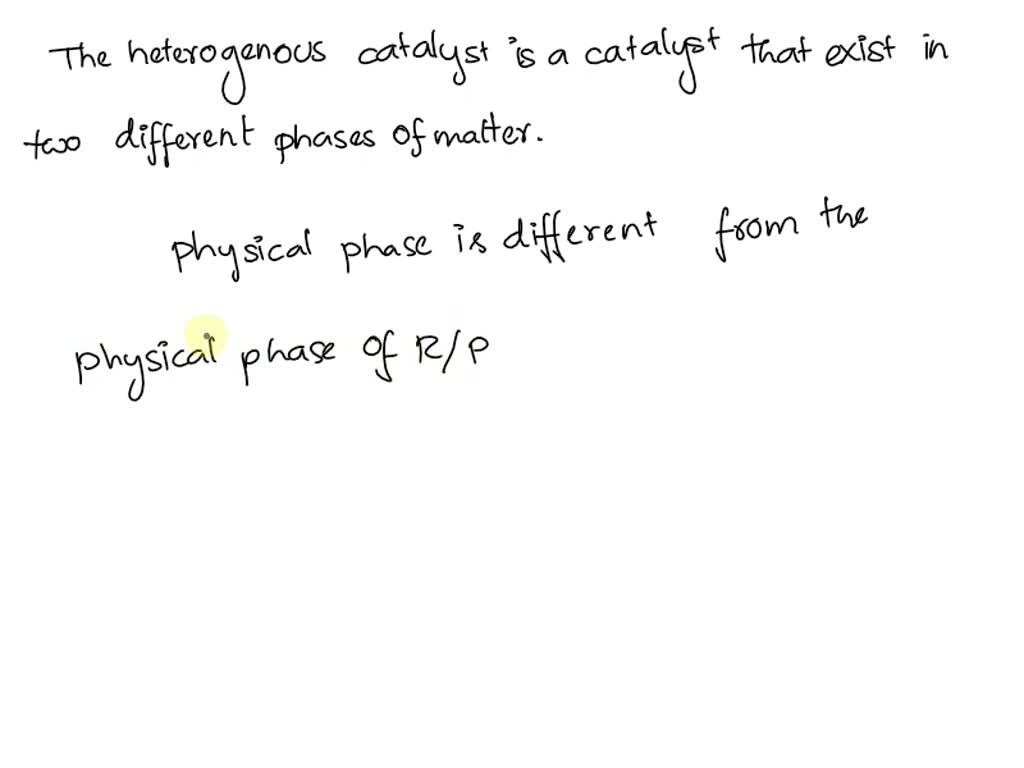 The heterogenous catalyst is a catalyst that exist in
two different phases of matter.
physical phase is different from the
physical phase of R/P